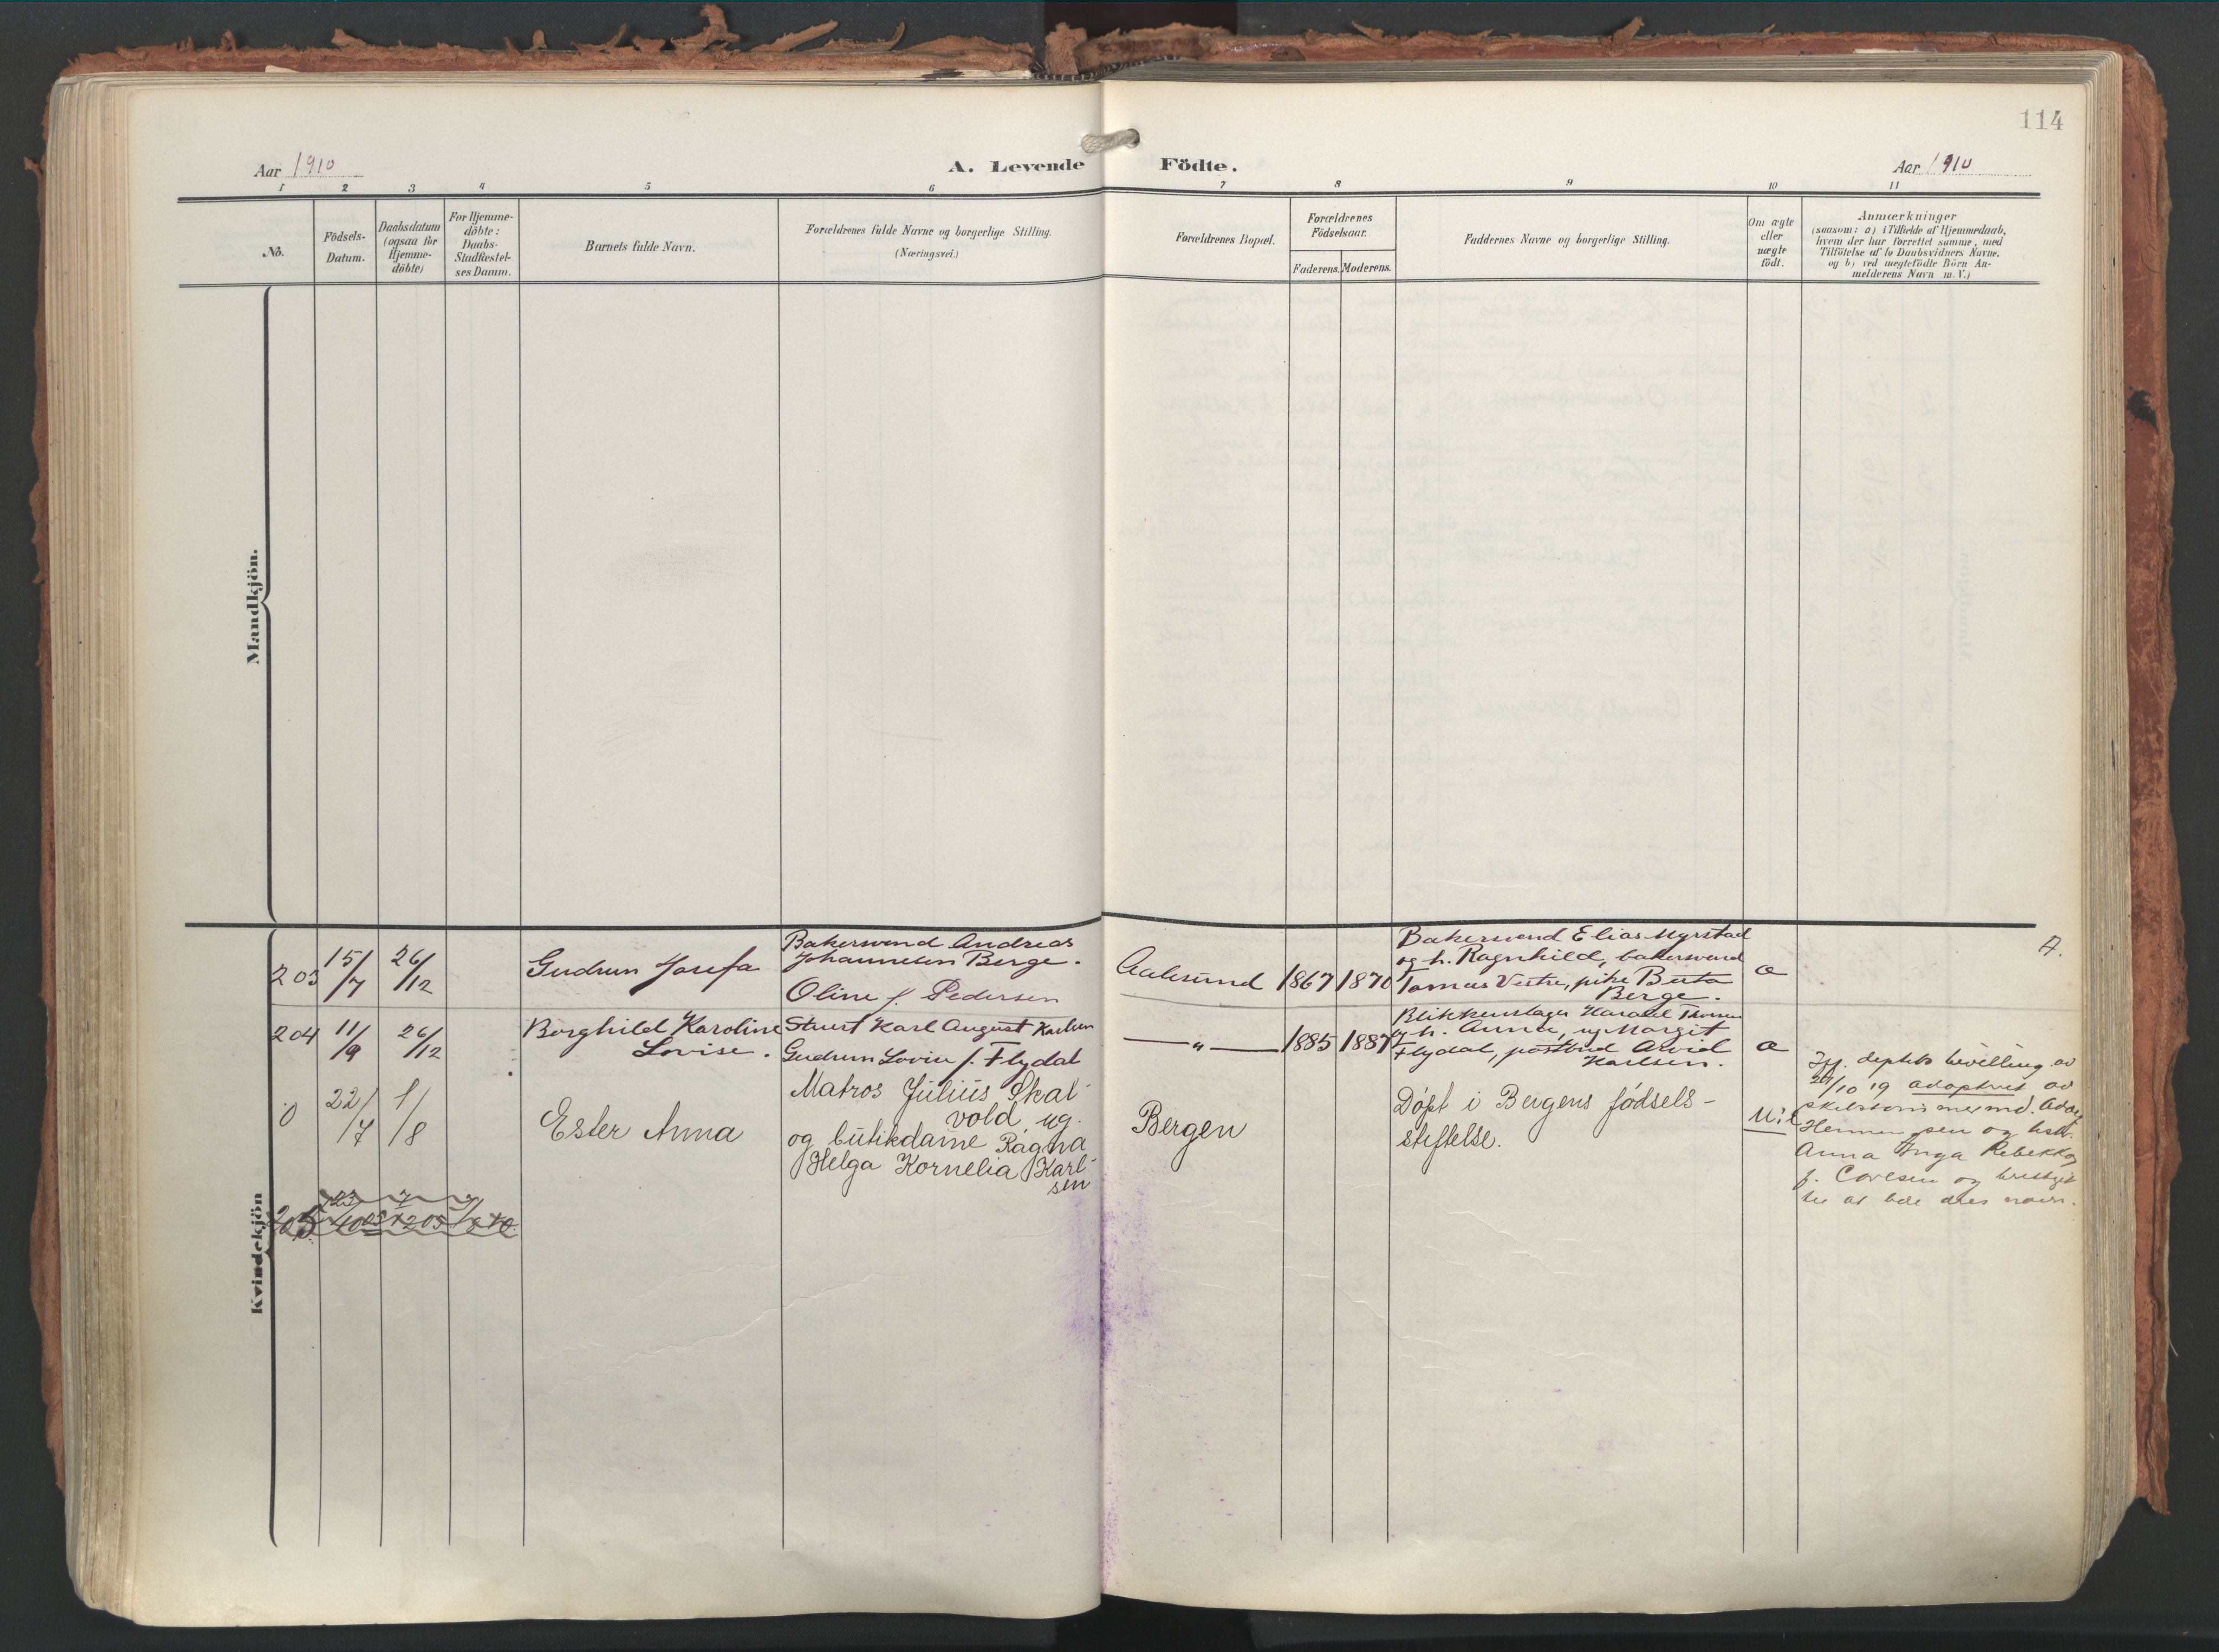 114
Aar 1910
A. Levende Födte.
Aar 1910
1 2 3 4 5 6 7 8 9 10 11
No.
Födsels-
Datum.
Daabsdatum
(ogsaa for
Hjemme-
döbte)
For Hjemme-
döbte:
Daabs-
Stadfæstel-
ses Datum.
Barnets fulde Navn.
Forældrenes fulde Navne og borgerlige Stilling.
(Næringsvei.)
Forældrenes Bopæl.
Forældrenes
Födselsaar.
Faderens. Moderens.
Faddernes Navne og borgerlige Stilling.
Om ægte
eller
uægte
födt.
Anmærkninger
(saasom: a) i Tilfælde af Hjemmedaab,
hvem der har forrettet samme, med
Tilföielse af to Daabsvidners Navne.
og b) ved uægtefödte Börn An-
melderens Navn m. V.)
Mandkjön.
Kvindekjön
203
15/7
26/12
Gudrun Josefa
Bakersvend Andreas
Johannesen Berge.
Oline f. Pedersen
Aalesund
1867
1870
Bakersvend Elias Myrstad
og h. Ragnhild, bakersvend
Tomas Vestre, pike Berta
Berge.
æ
204
11/9
26/12
Borghild Karoline
Lovise.
Stuert Karl August Karlsen
Gudrun Lovise f. Flydal
— " —
1885
1887
Blikkenslager Harald
og h. Anna, ug Margit
Flydal, postbud Arvid
Karlsen.
æ
0
22/7
1/8
Ester Anna
Matros Julius Skal-
vold, ug.
og butikdame Ragna
Helga Kornelia Karl-
sen
Bergen
Döpt i Bergens födsels-
stiftelse.
bevilling av
/10 19 adoptert av
og
Anna Inga Rebekka
f. Carlsen og
til at
205